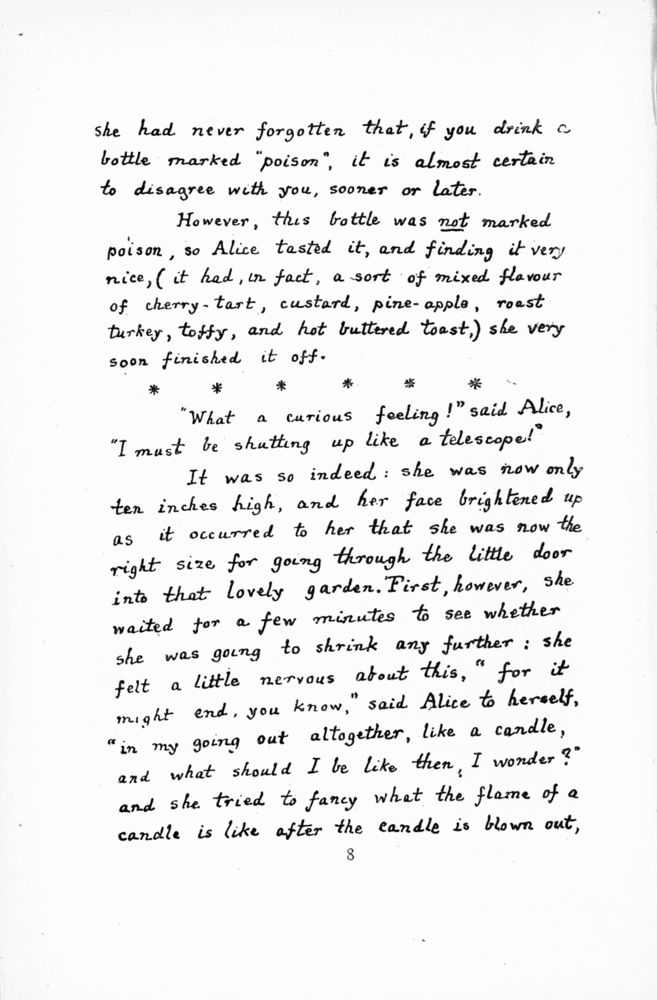 she had never forgotten that, if you drink a
bottle marked "poison", it is almost certain
to disagree with you, sooner or later.
However, this bottle was not marked
poison, so Alice tasted it, and finding it very
nice, (it had, in fact, a sort of mixed flavour
of cherry-tart, custard, pine-apple, roast
turkey, toffy, and hot buttered toast,) she very
soon finished it off.
* * * * * *
"What a curious feeling!" said Alice,
"I must be shutting up like a telescope!"
It was so indeed: she was now only
ten inches high, and her face brightened up
as it occurred to her that she was now the
right size for going through the little door
into that lovely garden. First, however, she
waited for a few minutes to see whether
she was going to shrink any further: she
felt a little nervous about this, "for it
might end, you know," said Alice to herself,
"in my going out altogether, like a candle,
and what should I be like then, I wonder?"
and she tried to fancy what the flame of a
candle is like after the candle is blown out,
8